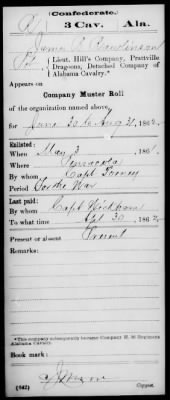 (Confederate.)
3 Cav. Ala.
James
Pvt
Lieut. Hill's Company, Prattville
Dragoons, Detached Company of
Alabama Cavalry.*
Appears on
Company Muster Roll
of the organization named above,
for June 30 to Aug 31, 1862.
Enlisted:
When May 3, 1861.
Where Pensacola
By whom Capt
Period for the War
Last paid:
By whom Capt
To what time Apl 30, 1862.
Present or absent Present
Remarks:
*This company subsequently became Company H, 3d Regiment
Alabama Cavalry.
Book mark:
(642)
Copyist.